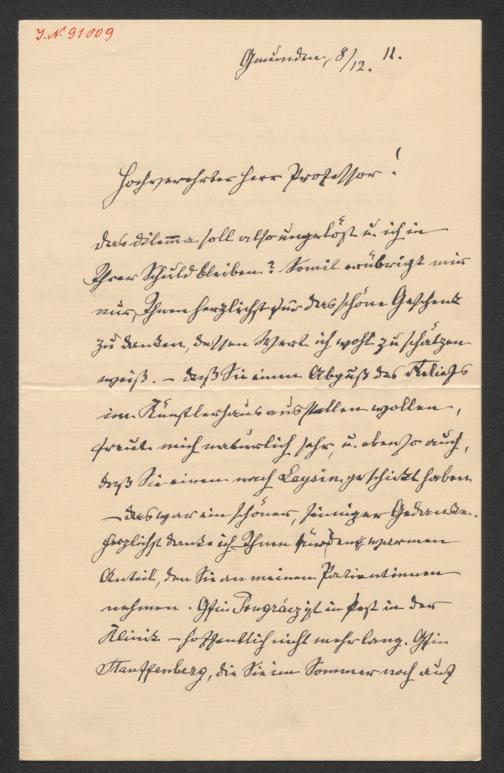 J.N. 91009
Gmunden, 8/12. 11.
Hochverehrter Herr Professor!
Das Dilemma soll also ungelöst u. ich in
Ihrer Schuld bleiben? Somit erübrigt mir
nur, Ihnen herzlichst für das schöne Geschenk
zu danken, dessen Wert ich wohl zu schätzen
weiß. – Daß Sie einen Abguß des Reliefs
im Künstlerhaus ausstellen wollen,
freut mich natürlich sehr, u. ebenso auch,
daß Sie einen nach Leysin geschickt haben
– das war ein schöner, sinniger Gedanke.
Herzlichst danke ich Ihnen für den warmen
Anteil, den Sie an meinen Patientinnen
nehmen. Gfin Pongrácz ist in Pest in der
Klinik – hoffentlich nicht mehr lang. Gfin
Stauffenberg, die Sie im Sommer noch auf